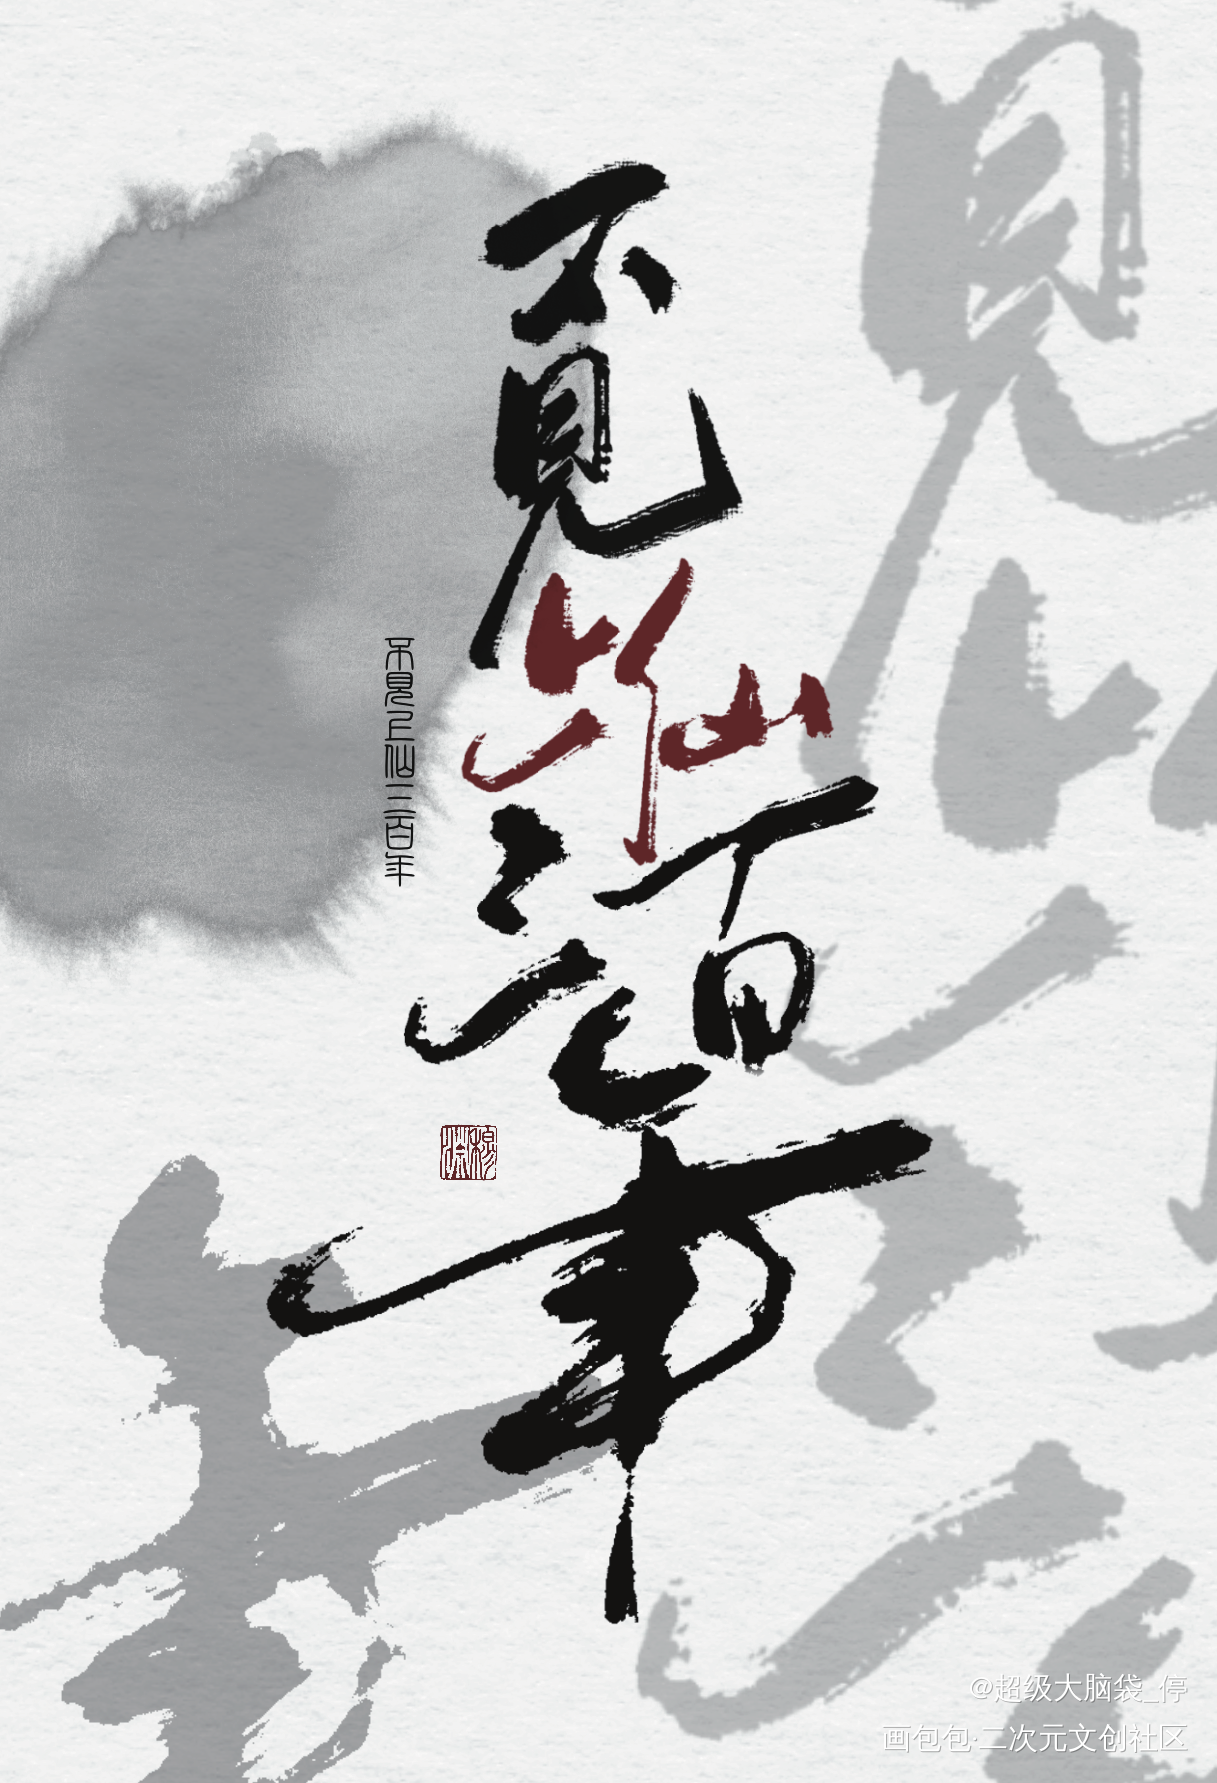 不見上仙三百年
不見上仙三百年
@超级大脑袋_停
画包包·二次元文创社区